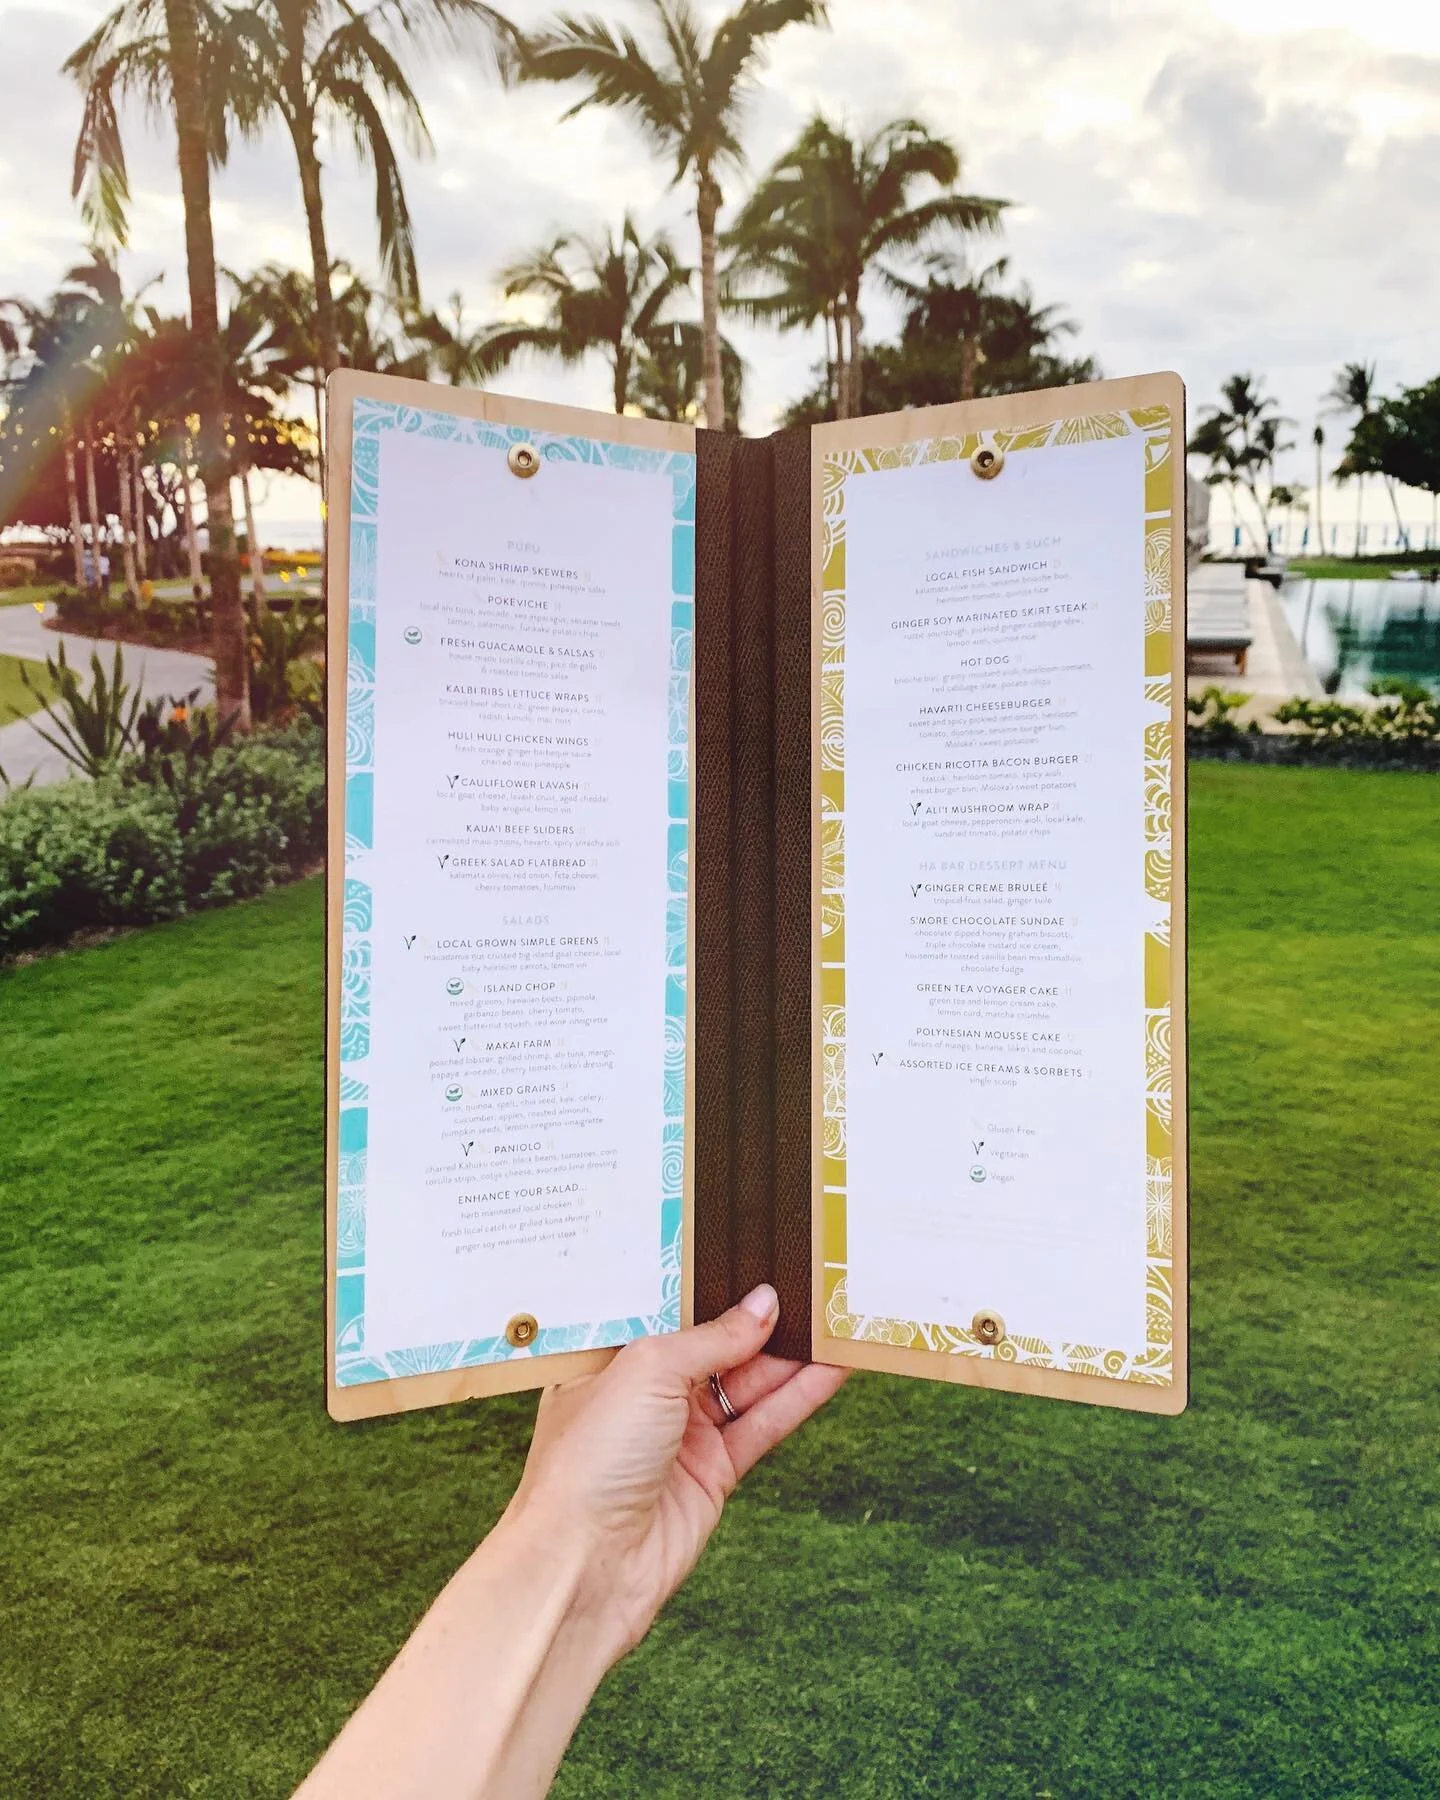 PUPU
KONA SHRIMP SKEWERS
hearts of palm, kale, quinoa, pineapple salsa
POKEVICHE
local ahi tuna, avocado, sea asparagus, sesame seeds,
tamari, calamansi, furikake potato chips
FRESH GUACAMOLE & SALSAS
house made tortilla chips, pico de gallo
& roasted tomato salsa
KALBI RIBS LETTUCE WRAPS
braised beef short rib, green papaya, carrot,
radish, kimchi, mac nuts
HULI HULI CHICKEN WINGS
fresh orange ginger barbeque sauce
charred maui pineapple
CAULIFLOWER LAVASH
local goat cheese, lavash crust, aged cheddar,
baby arugula, lemon vin
KAUA'I BEEF SLIDERS
carmelized maui onions, havarti, spicy sriracha aioli
GREEK SALAD FLATBREAD
kalamata olives, red onion, feta cheese,
cherry tomatoes, hummus
SALADS
LOCAL GROWN SIMPLE GREENS
macadamia nut crusted big island goat cheese, local
baby heirloom carrots, lemon vin
ISLAND CHOP
mixed greens, hawaiian beets, pipinola,
garbanzo beans, cherry tomato,
sweet butternut squash, red wine vinaigrette
MAKAI FARM
poached lobster, grilled shrimp, ahi tuna, mango,
papaya, avocado, cherry tomato, liliko'i dressing
MIXED GRAINS
farro, quinoa, spelt, chia seed, kale, celery,
cucumber, apples, roasted almonds,
pumpkin seeds, lemon oregano vinaigrette
PANIOLO
charred Kahuku corn, black beans, tomatoes, corn
tortilla strips, cotija cheese, avocado lime dressing
ENHANCE YOUR SALAD...
herb marinated local chicken
fresh local catch or grilled kona shrimp
ginger soy marinated skirt steak
SANDWICHES & SUCH
LOCAL FISH SANDWICH
kalamata olive aioli, sesame brioche bun,
heirloom tomato, quinoa rice
GINGER SOY MARINATED SKIRT STEAK
rustic sourdough, pickled ginger cabbage slaw,
lemon aioli, quinoa rice
HOT DOG
brioche bun, grainy mustard aioli, heirloom tomato,
red cabbage slaw, potato chips
HAVARTI CHEESEBURGER
sweet and spicy pickled red onion, heirloom
tomato, dijonaise, sesame burger bun,
Moloka'i sweet potatoes
CHICKEN RICOTTA BACON BURGER
tzatziki, heirloom tomato, spicy aioli,
wheat burger bun, Moloka'i sweet potatoes
ALI'I MUSHROOM WRAP
local goat cheese, pepperoncini aioli, local kale,
sundried tomato, potato chips
HA BAR DESSERT MENU
GINGER CREME BRULEÉ
tropical fruit salad, ginger tuile
S'MORE CHOCOLATE SUNDAE
chocolate dipped honey graham biscotti,
triple chocolate custard ice cream,
housemade toasted vanilla bean marshmallow,
chocolate fudge
GREEN TEA VOYAGER CAKE
green tea and lemon cream cake,
lemon curd, matcha crumble
POLYNESIAN MOUSSE CAKE
flavors of mango, banana, liliko'i and coconut
ASSORTED ICE CREAMS & SORBETS
single scoop
Gluten Free
Vegitarian
Vegan